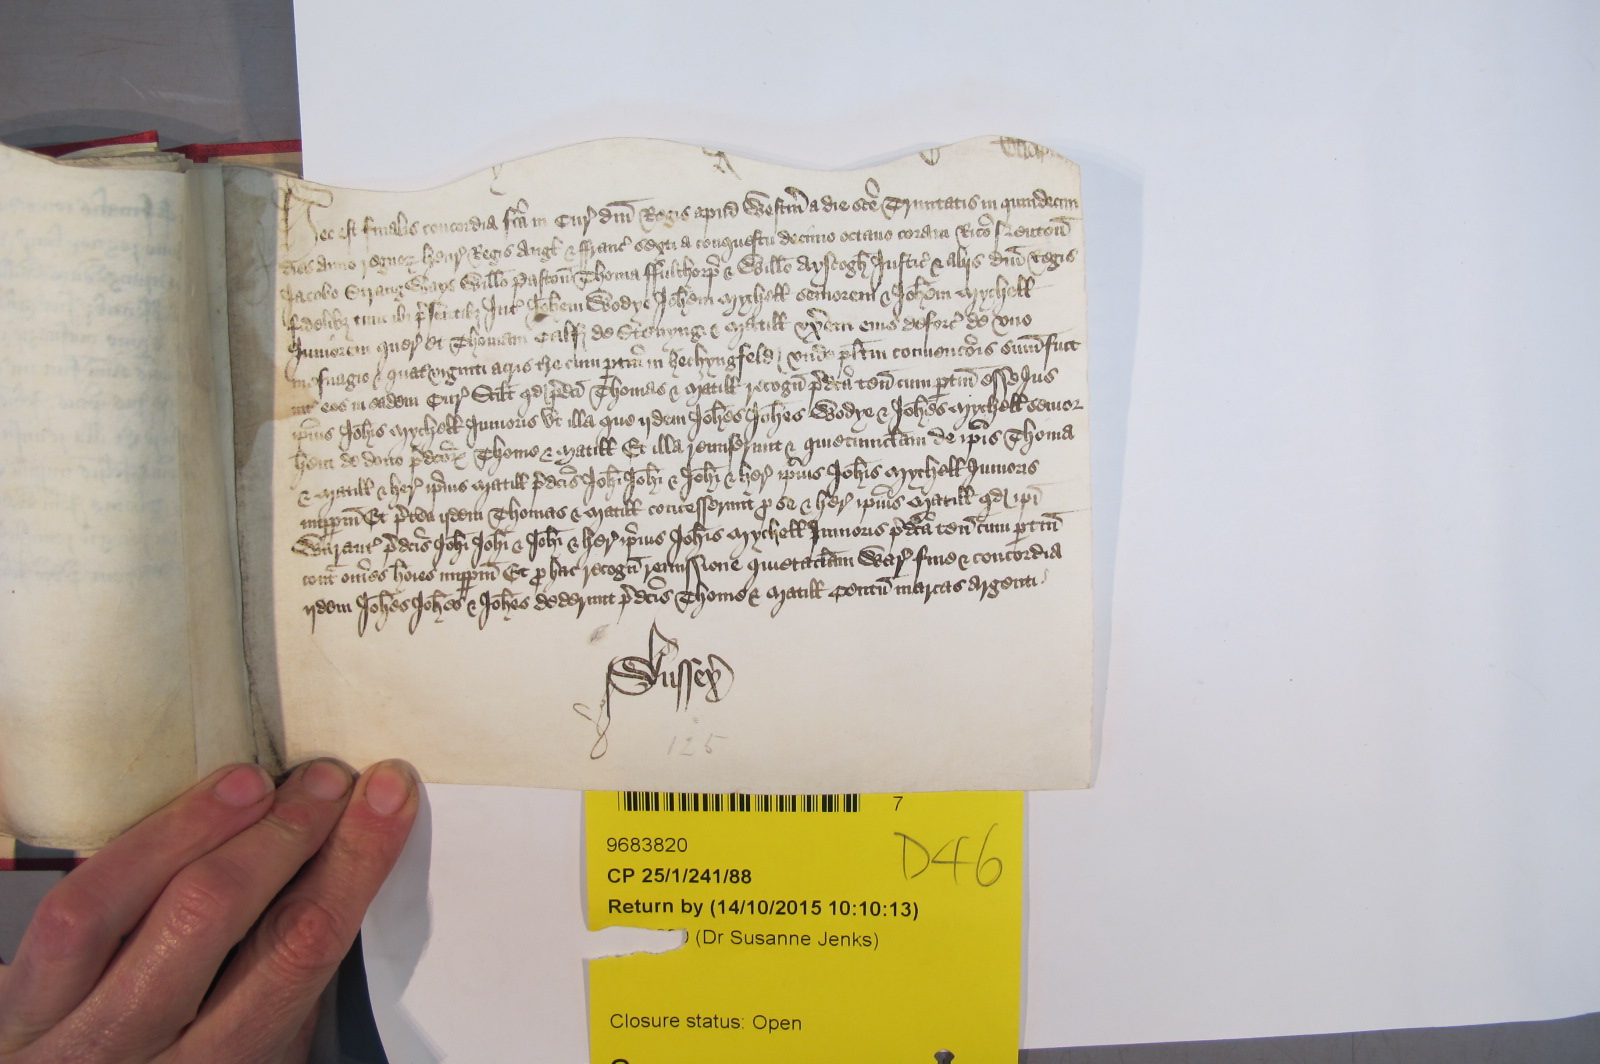 Hec est finalis concordia fc̄a in Cur̄ dn̄i Regis apud Westm̄ a die Sc̄e Trinitatis in quindecim
dies anno regnor̄ Henr̄ Regis Angl̄ & Franc̄ sexti a conquestu decimo octavo coram Ric̄o Neuton̄
Jacobo Strangways Will̄o Paston̄ Thoma Fulthorp̄ & Will̄o Ayscogh Justic̄ & aliis dn̄i Regis
fidelibȝ tunc ibi p̄sentibȝ Int̄ Joh̄em Wodye Joh̄em Mychell seniorem & Joh̄em Mychell
Juniorem quer̄ et Thomam Calf de Stenyng & Matill̄ ux̄em eius deforc̄ de uno
mesuagio & quat̄viginti acris t̄re cum ptin̄ in Hechyngfeld unde pl̄itum convenc̄ois sum̄ fuit
int̄ eos in eadem Cur̄ Scil̄t qd p̄dc̄i Thomas & Matill̄ recogn̄ p̄dc̄a ten̄ cum ptin̄ esse Jus
ip̄ius Joh̄is Mychell Junioris ut illa que ijdem Joh̄es Joh̄es Wodye & Joh̄es Mychell senior
hent de dono p̄dc̄or̄ Thome & Matill̄ Et illa remiserunt & quietumclam̄ de ip̄is Thoma
& Matill̄ & her̄ ip̄ius Matill̄ p̄dc̄is Joh̄i Joh̄i & Joh̄i & her̄ ip̄ius Joh̄is Mychell Junioris
imppm̄ Et p̄tea ijdem Thomas & Matill̄ concesserunt p se & her̄ ip̄ius Matill̄ qd ip̄i
Warant̄ p̄dc̄is Joh̄i Joh̄i & Joh̄i & her̄ ip̄ius Joh̄is Mychell Junioris p̄dc̄a ten̄ cum ptin̄
cont̄ om̄es ho̅ies imppm̄ Et p hac recogn̄ remissione quietaclam̄ War̄ fine & concordia
ijdem Joh̄es Joh̄es & Joh̄es dederunt p̄dc̄is Thome & Matill̄ centum marcas argenti
Sussex
125
7
9683820
D46
CP 25/1/241/88
Return by (14/10/2015 10:10:13)
(Dr Susanne Jenks)
Closure status: Open